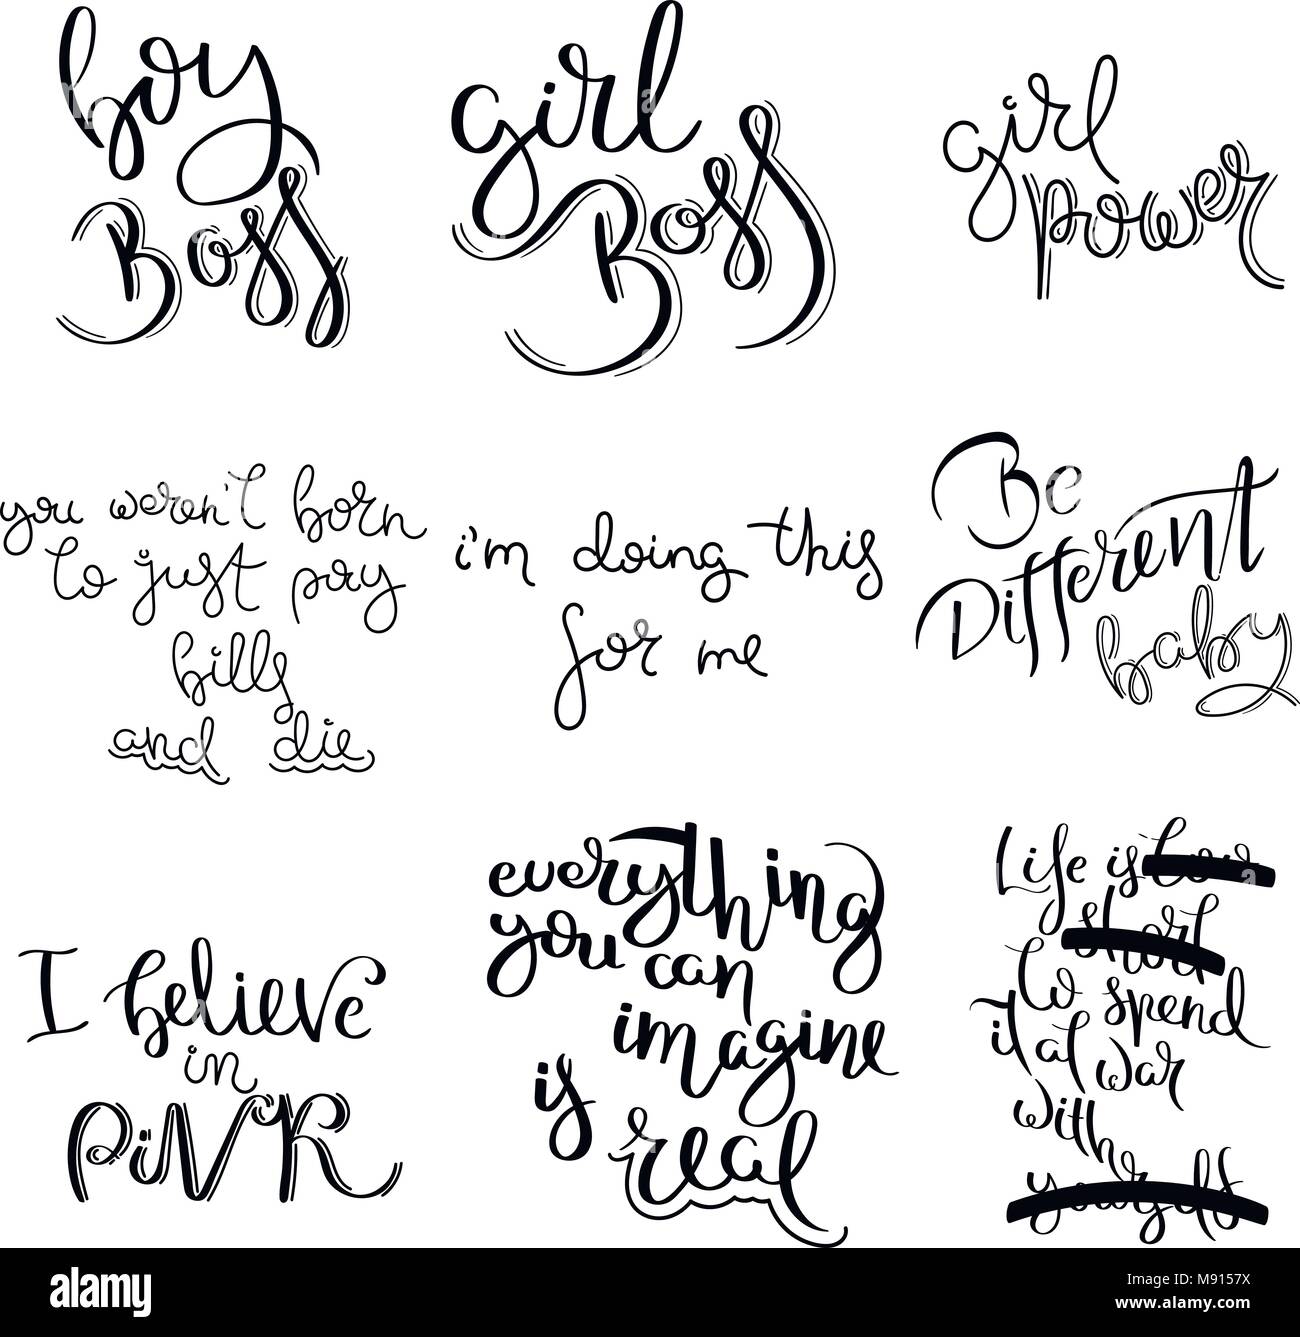 boy
Boss
girl
Boss
girl
power
you weren't born
to just pay
bills
and die
i'm doing this
for me
Be
Different
baby
I believe
in
PiNK
everything
you can
imagine
is
real
Life is too
short
to spend
it at war
with
yourself
alamy
Image ID: M9157X
www.alamy.com